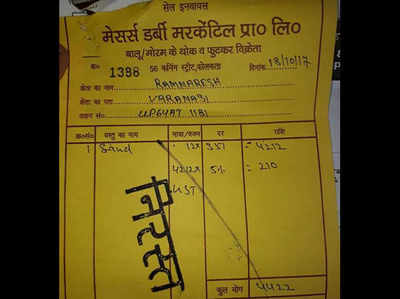 सेल इनवायस
मेसर्स डर्बी मरकेंटिल प्रा० लि०
बालू/मोरम के थोक व फुटकर विक्रेता
क्र० 1398 56 कनिंग स्ट्रीट, कोलकता दिनांक 18/10/17
क्रेता का नाम RAMNARESH
क्रेता का पता VARANASI
वाहन सं० UP64AT 1181
क्र०सं० वस्तु का नाम दर राशि
1 Sand 12x 351 = 4212
4212x 5% = 210
GST
निरस्त
कुल योग 4422